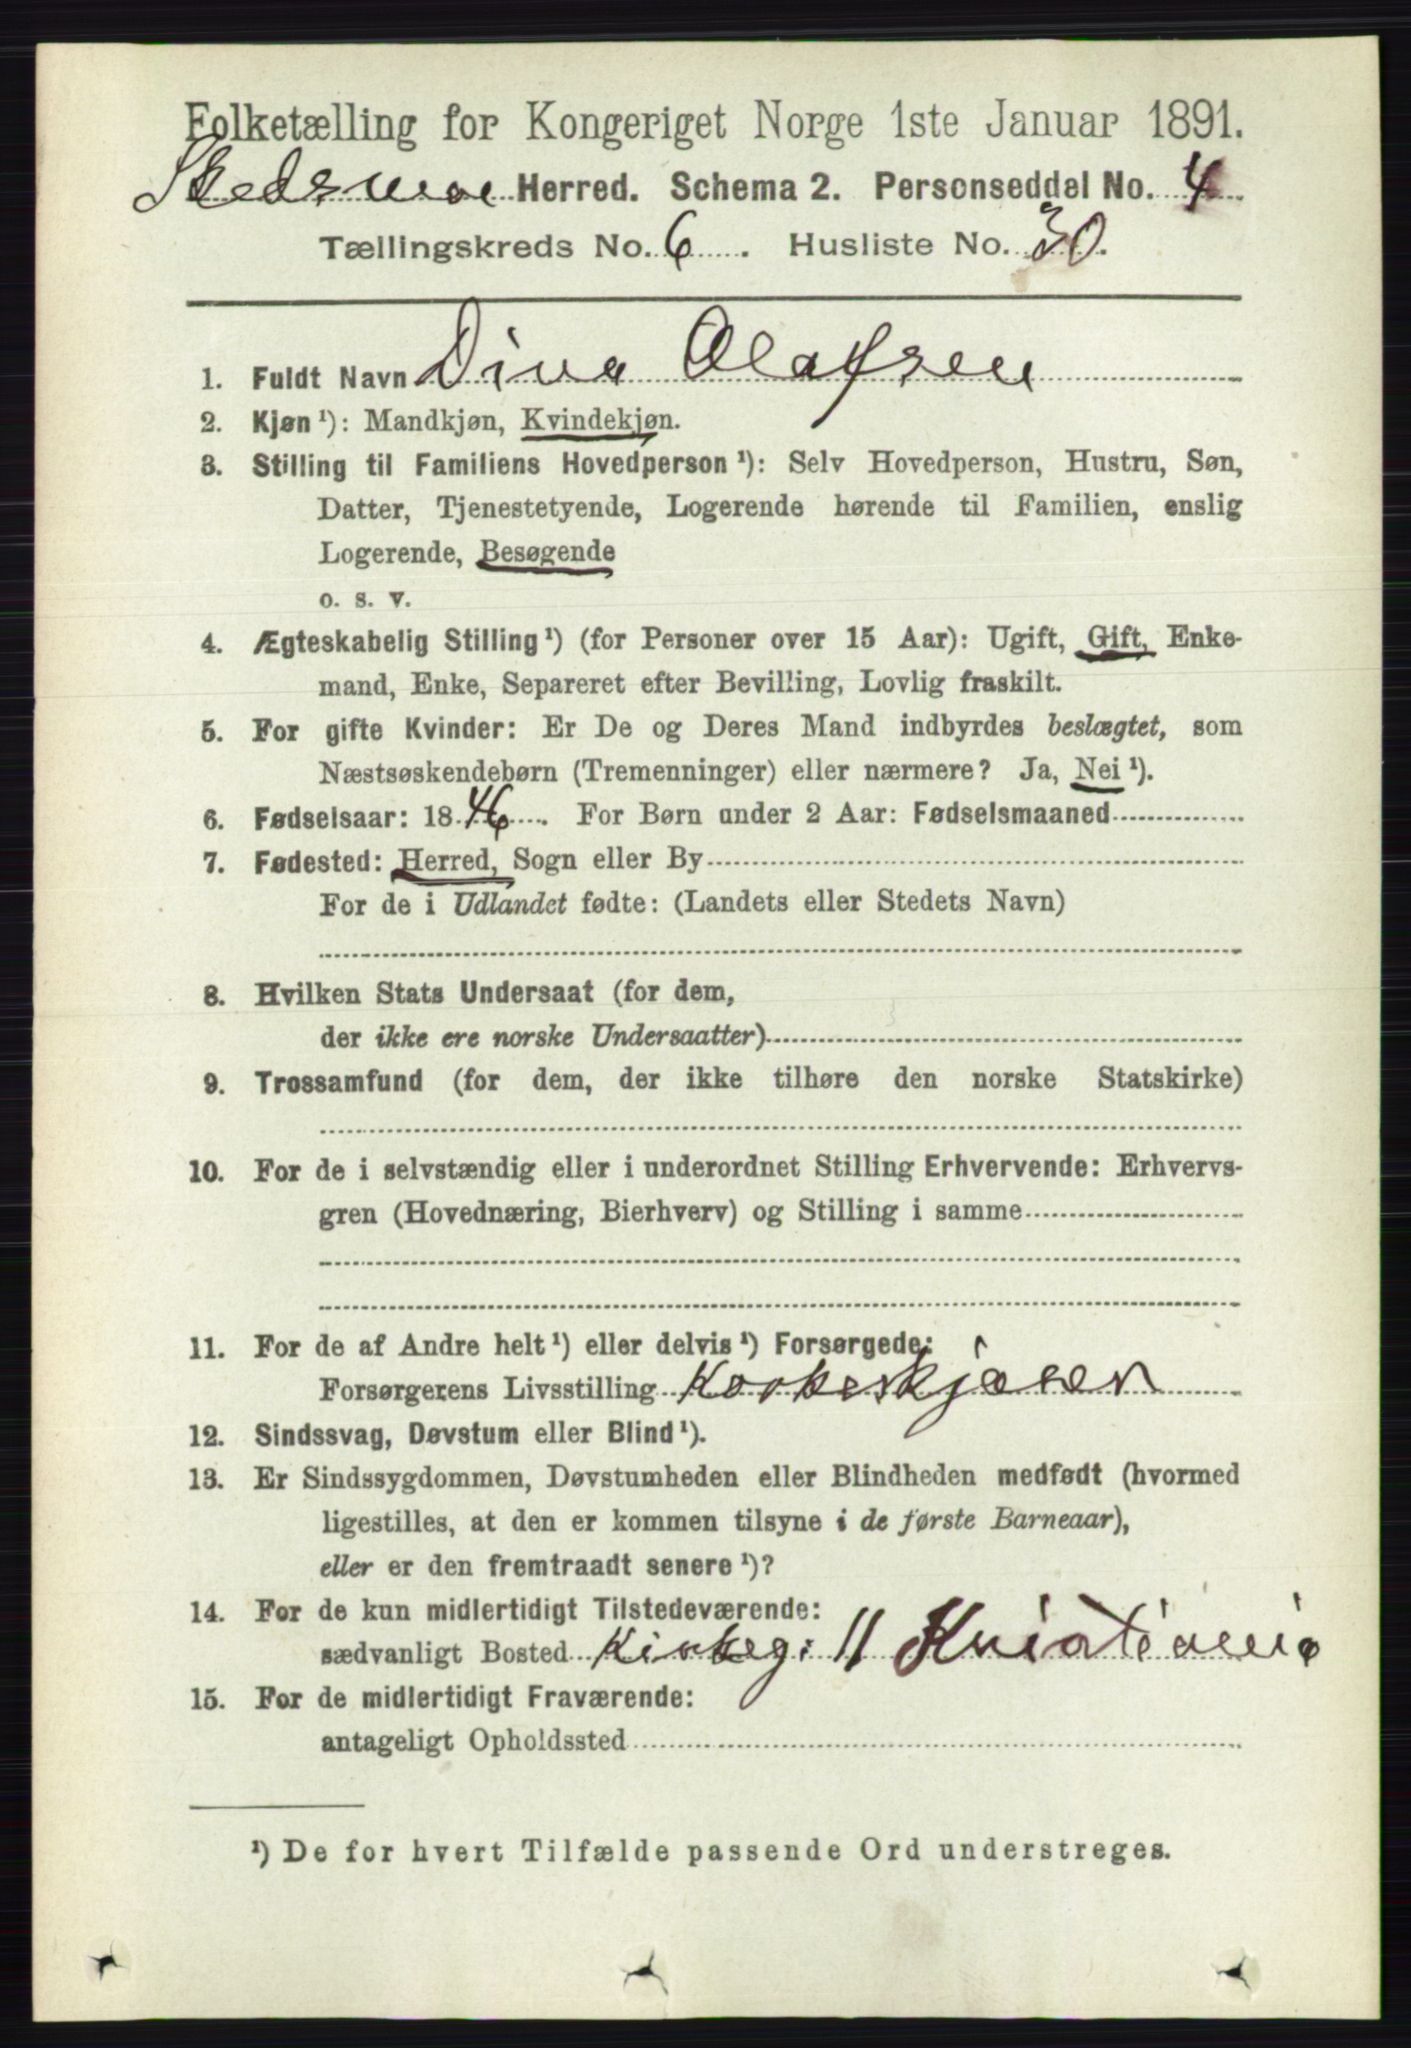 Folketælling for Kongeriget Norge 1ste Januar 1891.
Skedsmoe Herred. Schema 2. Personseddel No. 4
Tællingskreds No. 6. Husliste No. 30.
1. Fuldt Navn Dina Olafsen
2. Kjøn ¹): Mandkjøn, Kvindekjøn.
3. Stilling til Familiens Hovedperson ¹): Selv Hovedperson, Hustru, Søn,
Datter, Tjenestetyende, Logerende hørende til Familien, enslig
Logerende, Besøgende
o. s. v.
4. Ægteskabelig Stilling ¹) (for Personer over 15 Aar): Ugift, Gift, Enke-
mand, Enke, Separeret efter Bevilling, Lovlig fraskilt.
5. For gifte Kvinder: Er De og Deres Mand indbyrdes beslægtet, som
Næstsøskendebørn (Tremenninger) eller nærmere? Ja, Nei ¹).
6. Fødselsaar: 1846. For Børn under 2 Aar: Fødselsmaaned
7. Fødested: Herred, Sogn eller By
For de i Udlandet fødte: (Landets eller Stedets Navn)
8. Hvilken Stats Undersaat (for dem,
der ikke ere norske Undersaatter)
9. Trossamfund (for dem, der ikke tilhøre den norske Statskirke)
10. For de i selvstændig eller i underordnet Stilling Erhvervende: Erhvervs-
gren (Hovednæring, Bierhverv) og Stilling i samme
11. For de af Andre helt ¹) eller delvis ¹) Forsørgede:
Forsørgerens Livsstilling
12. Sindssvag, Døvstum eller Blind ¹).
13. Er Sindssygdommen, Døvstumheden eller Blindheden medfødt (hvormed
ligestilles, at den er kommen tilsyne i de første Barneaar),
eller er den fremtraadt senere ¹)?
14. For de kun midlertidigt Tilstedeværende:
sædvanligt Bosted Kirkeg: 11 Kristiania
15. For de midlertidigt Fraværende:
antageligt Opholdssted
¹) De for hvert Tilfælde passende Ord understreges.